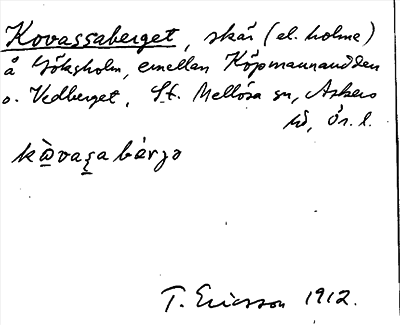 Kovassaberget, skär (el. holme)
å Göksholm, emellan Köpmannaudden
o. Vedberget, St. Mellösa sn, Askers
hd, Ör. l.
kòvasa bærjə
T. Ericsson 1912.